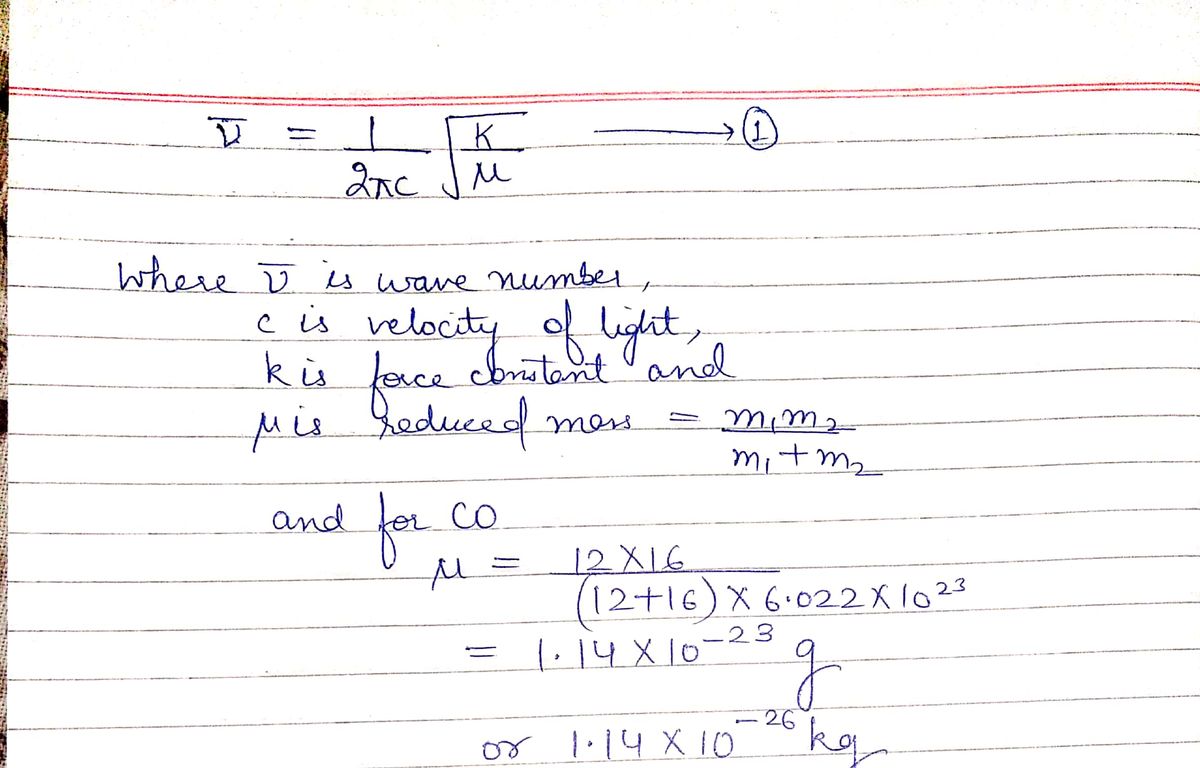 ν̅ = 1/2πc √K/μ ⟶ ①
Where ν̅ is wave number,
c is velocity of light,
k is force constant and
μ is Reduced mass = m₁m₂/m₁+m₂
and for CO
μ = 12X16/(12+16) X 6.022 X 10²³
= 1.14 X 10⁻²³ g
or 1.14 X 10⁻²⁶ kg